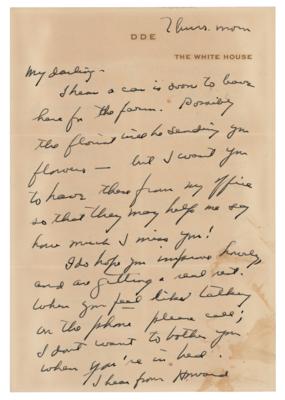 Thurs. morn
DDE
THE WHITE HOUSE
My darling -
I hear a car is soon to leave
here for the farm. Possibly
the florist will be sending you
flowers — but I want you
to have these from my office
so that they may help me say
how much I miss you!
I do hope you improve hourly,
and are getting a real rest.
When you feel like talking
on the phone please call;
I don't want to bother you
when you're in bed.
I hear from Howard